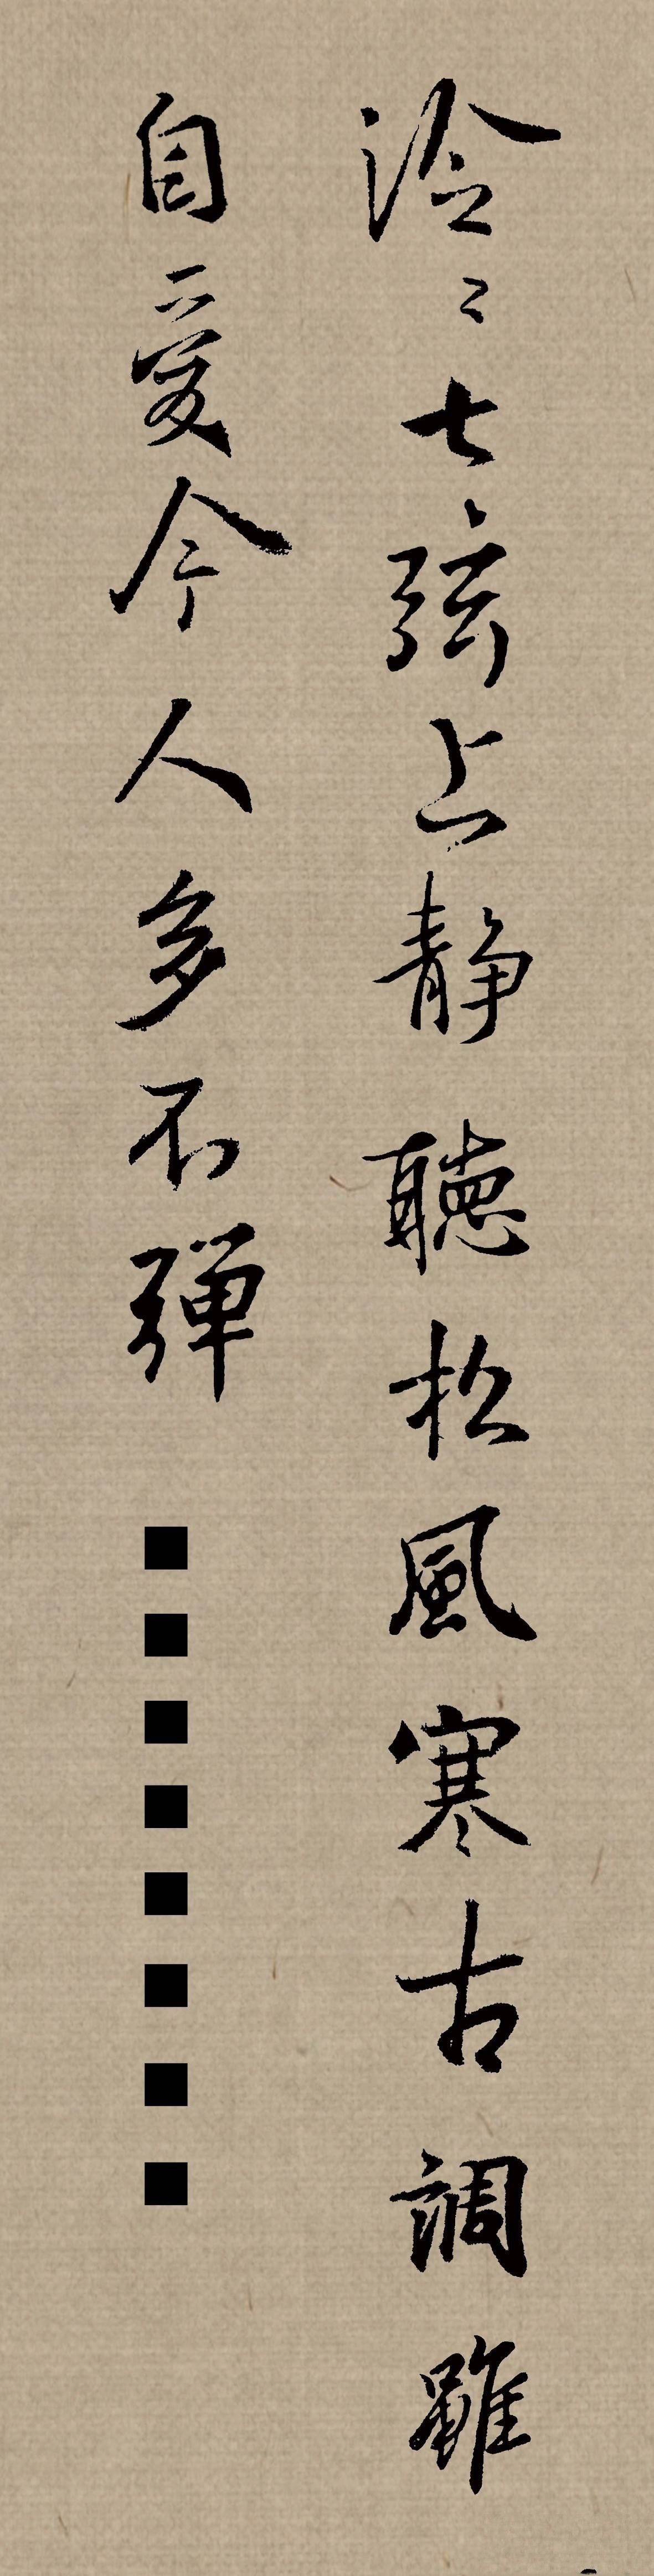 泠〻七弦上静聽松風寒古調雖
自愛今人多不弹
■■■■■■■■